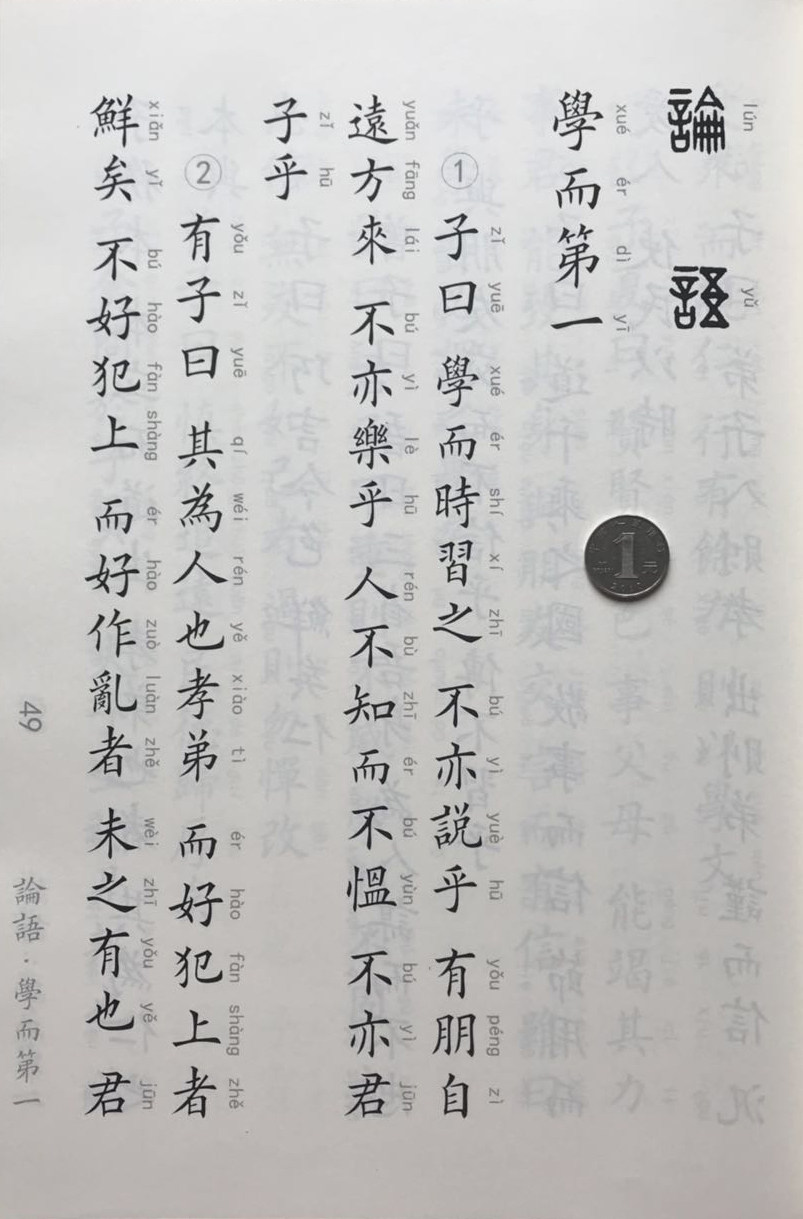 論語
lún yǔ
學而第一
xué ér dì yī
① 子曰 學而時習之 不亦説乎 有朋自
zǐ yuē xué ér shí xí zhī bú yì yuè hū yǒu péng zì
遠方來 不亦樂乎 人不知而不慍 不亦君
yuǎn fāng lái bú yì lè hū rén bù zhī ér bú yùn bú yì jūn
子乎
zǐ hū
② 有子曰 其為人也孝弟 而好犯上者
yǒu zǐ yuē qí wéi rén yě xiào tì ér hào fàn shàng zhě
鮮矣 不好犯上 而好作亂者 未之有也 君
xiǎn yǐ bú hào fàn shàng ér hào zuò luàn zhě wèi zhī yǒu yě jūn
49
論語·學而第一
1
元